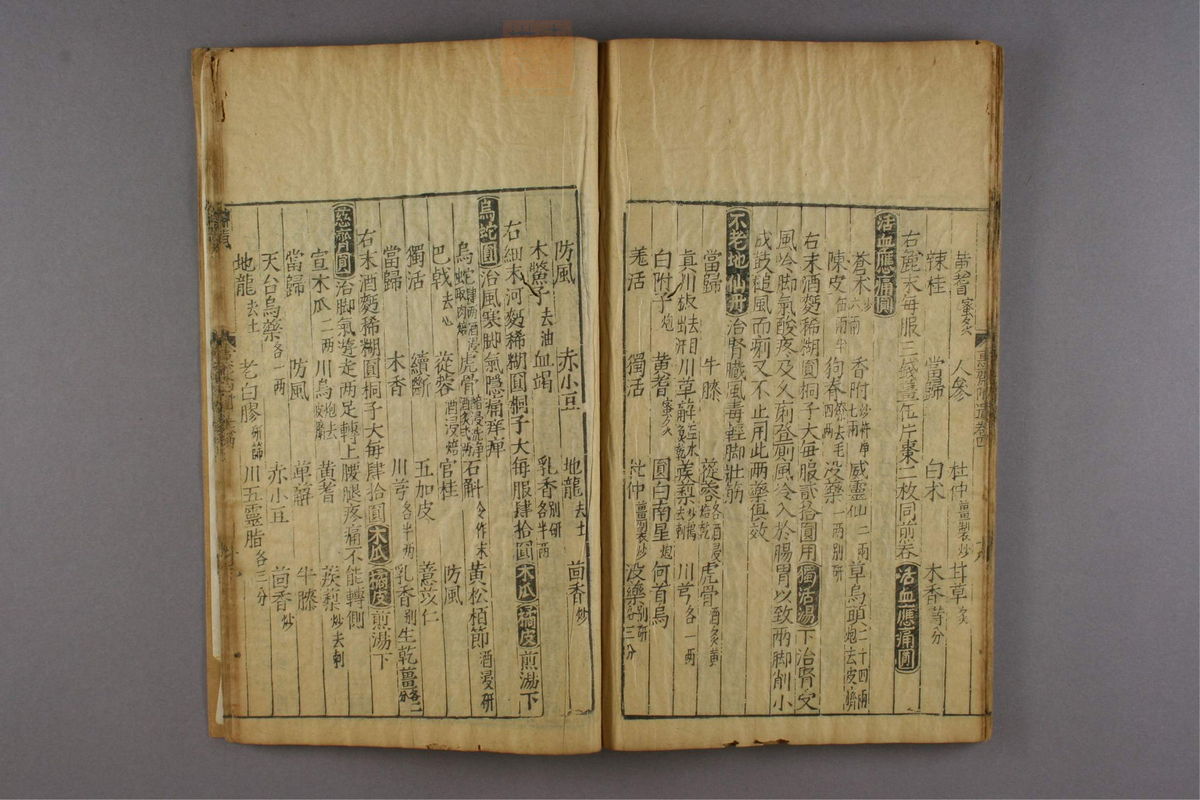 黄耆蜜炙 人參 杜仲薑製炒 甘草炙
辣桂 當歸 白朮 木香等分
右麁末每服三錢薑伍片棗二枚同前卷活血應痛圓
活血應痛圓
蒼朮六兩 香附七兩 威靈仙二兩 草烏頭二十四兩炮去皮臍
陳皮伍兩半 狗脊去毛四兩 沒藥一兩別研
右末酒麪稀糊圓桐子大每服貳拾圓用獨活湯下治腎
風冷脚氣酸疼及久痢登厠風冷入於腸胃以致兩脚削小
成鼓槌風而痢又不止用此兩藥俱效
不老地仙丹治腎臟風毒輕脚壯筋
當歸 牛膝 蓯蓉各酒浸焙乾 虎骨酒炙黄
真川椒去目出汗 川萆薢 蒺藜炒去刺 川芎各一兩
白附子炮 黄耆蜜炙 圓白南星炮 何首烏
羌活 獨活 杜仲薑製炒 沒藥別研三分
防風 赤小豆 地龍去土 茴香炒
木鱉子去油 血竭 乳香別研各半兩
右細末河麪稀糊圓桐子大每服肆拾圓木瓜橘皮煎湯下
烏蛇圓治風寒脚氣隱痛痒痺
烏蛇肆兩酒浸取肉焙 虎骨 石斛 黄松栢節酒浸研
巴戟去心 蓯蓉酒浸焙 官桂 防風
獨活 續斷 五加皮 薏苡仁
當歸 木香 川芎各半兩 乳香別 生乾薑各一分
右末酒麪稀糊圓桐子大每肆拾圓木瓜橘皮煎湯下
慈濟圓治脚氣遶走两足轉上腰腿疼痛不能轉側
宣木瓜二兩 川烏炮去皮臍 黄耆 蒺藜炒去刺
當歸 防風 萆薢 牛膝
天台烏藥各一兩 赤小豆 茴香炒
地龍去土 老白膠研節 川五靈脂各三分